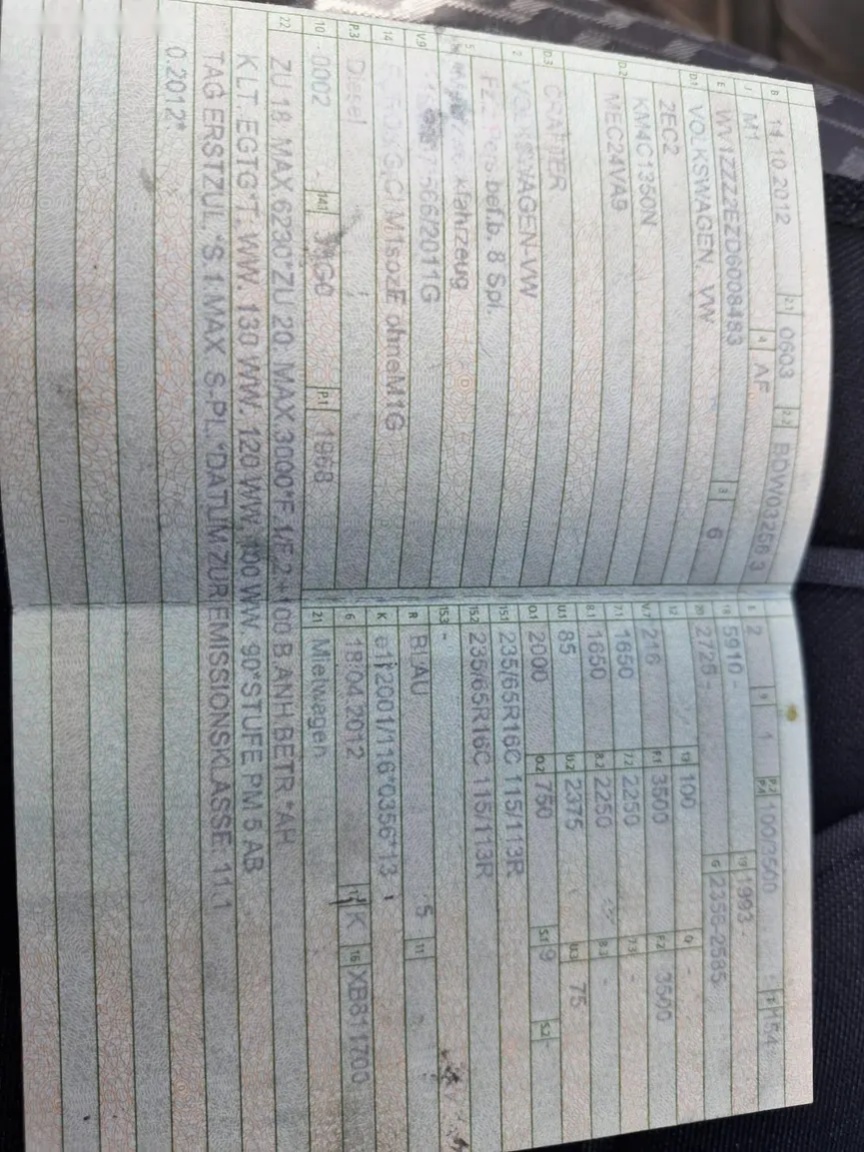 B 11.10.2012 2.1 0603 2.2 BDW032563
J M1 4 AF
E WV1ZZZ2EZD6008483 3 6
D.1 VOLKSWAGEN, VW
2EC2
D.2 KM4C1350N
MEC24VA9
D.3 CRAFTER
2 VOLKSWAGEN-VW
5 Fz. Pers.bef.b. 8 Spl.
V.9 566/2011G
14 M1sozE ohneM1G
P.3 Diesel
10 0002 14.1 P.1 1968
22 ZU 18: MAX.6230*ZU 20: MAX.3000*F.1/F.2:+100 B.ANH.BETR.*AH
KLT. EGTG*T: WW. 130 WW. 120 WW. 100 WW. 90*STUFE PM 5 AB
TAG ERSTZUL.*S.1:MAX. S-PL.*DATUM ZUR EMISSIONSKLASSE: 11.1
0.2012*
L 2 9 1 P.2 P.4 100/3500 T 154
18 5910 - 19 1993 -
20 2725 - G 2356-2585
12 - 13 100 Q -
V.7 216 F.1 3500 F.2 3500
7.1 1650 7.2 2250 7.3 -
8.1 1650 8.2 2250 8.3 -
U.1 85 U.2 2375 U.3 75
O.1 2000 O.2 750 S.1 9 S.2 -
15.1 235/65R16C 115/113R
15.2 235/65R16C 115/113R
15.3 -
R BLAU 5 11
K e1*2001/116*0356*13
6 18.04.2012 17 K 16 XB811700
21 Mietwagen